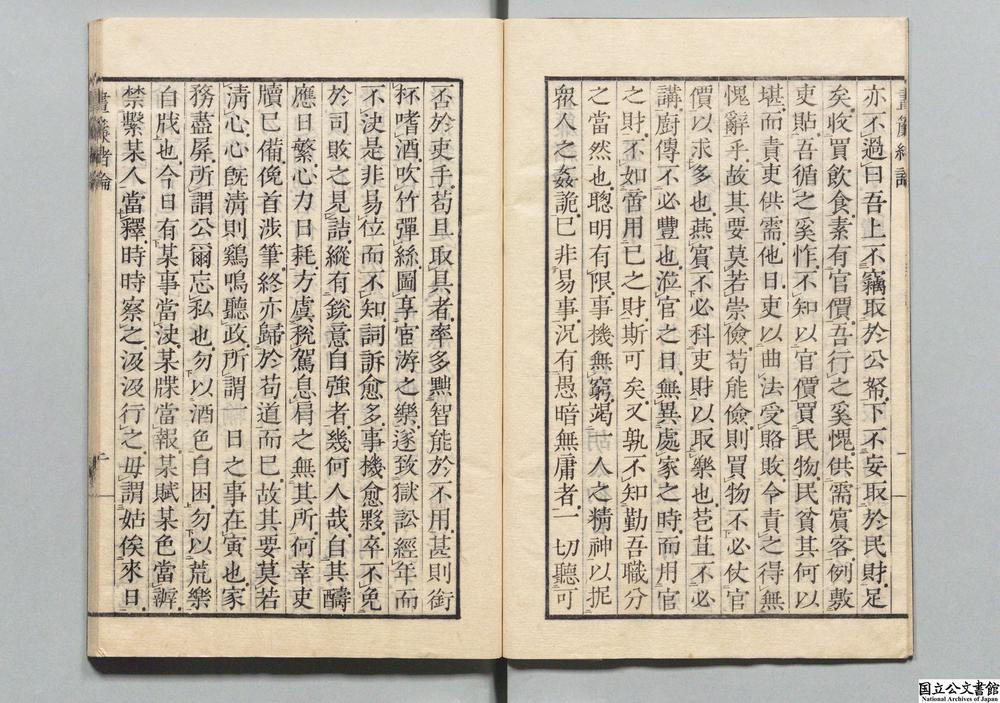 晝簾緒論
亦不過曰吾上不竊取於公帑下不妄取於民財足
矣收買飲食素有官價吾行之奚愧供需賓客例敷
吏貼吾循之奚怍不知以官價買民物民貧其何以
堪而責吏供需他日吏以曲法受賂敗令責之得無
愧辭乎故其要莫若崇儉苟能儉則買物不必仗官
價以求多也燕賓不必科吏財以取樂也苞苴不必
講廚傳不必豐也涖官之日無異處家之時而用官
之財不如嗇用己之財斯可矣又孰不知勤吾職分
之當然也聰明有限事機無窮竭一人之精神以扼
眾人之姦詭已非易事況有愚暗無庸者一切聽可
否於吏手苟且取具者率多黠智能於不用甚則銜
杯嗜酒吹竹彈絲圖享宦游之樂遂致獄訟經年而
不決是非易位而不知詞訴愈多事機愈夥卒不免
於司敗之見詰縱有銳意自強者幾何人哉自其醻
應日繁心力日耗方虞稅駕息肩之無其所何幸吏
牘已備俛首涉筆終亦歸於苟道而已故其要莫若
淸心心旣清則鷄鳴聽政所謂一日之事在寅也家
務盡屏所謂公爾忘私也勿以酒色自困勿以荒樂
自戕也今日有某事當決某牒當報某賦某色當辦
禁繫某人當釋時時察之汲汲行之毋謂姑俟來日
晝簾緒論
二
国立公文書館
National Archives of Japan